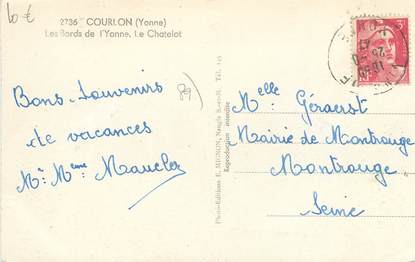 10 €
2736 - COURLON (Yonne)
Les Bords de l'Yonne, Le Chatelot
Bons Souvenirs
de vacances
Mr Mme Maucler
89
Photo-Editions E. MIGNON, Nangis (S.-et-M. Tél. 145
Reproduction interdite
Melle Géraerst
Mairie de Montrouge
Montrouge
Seine